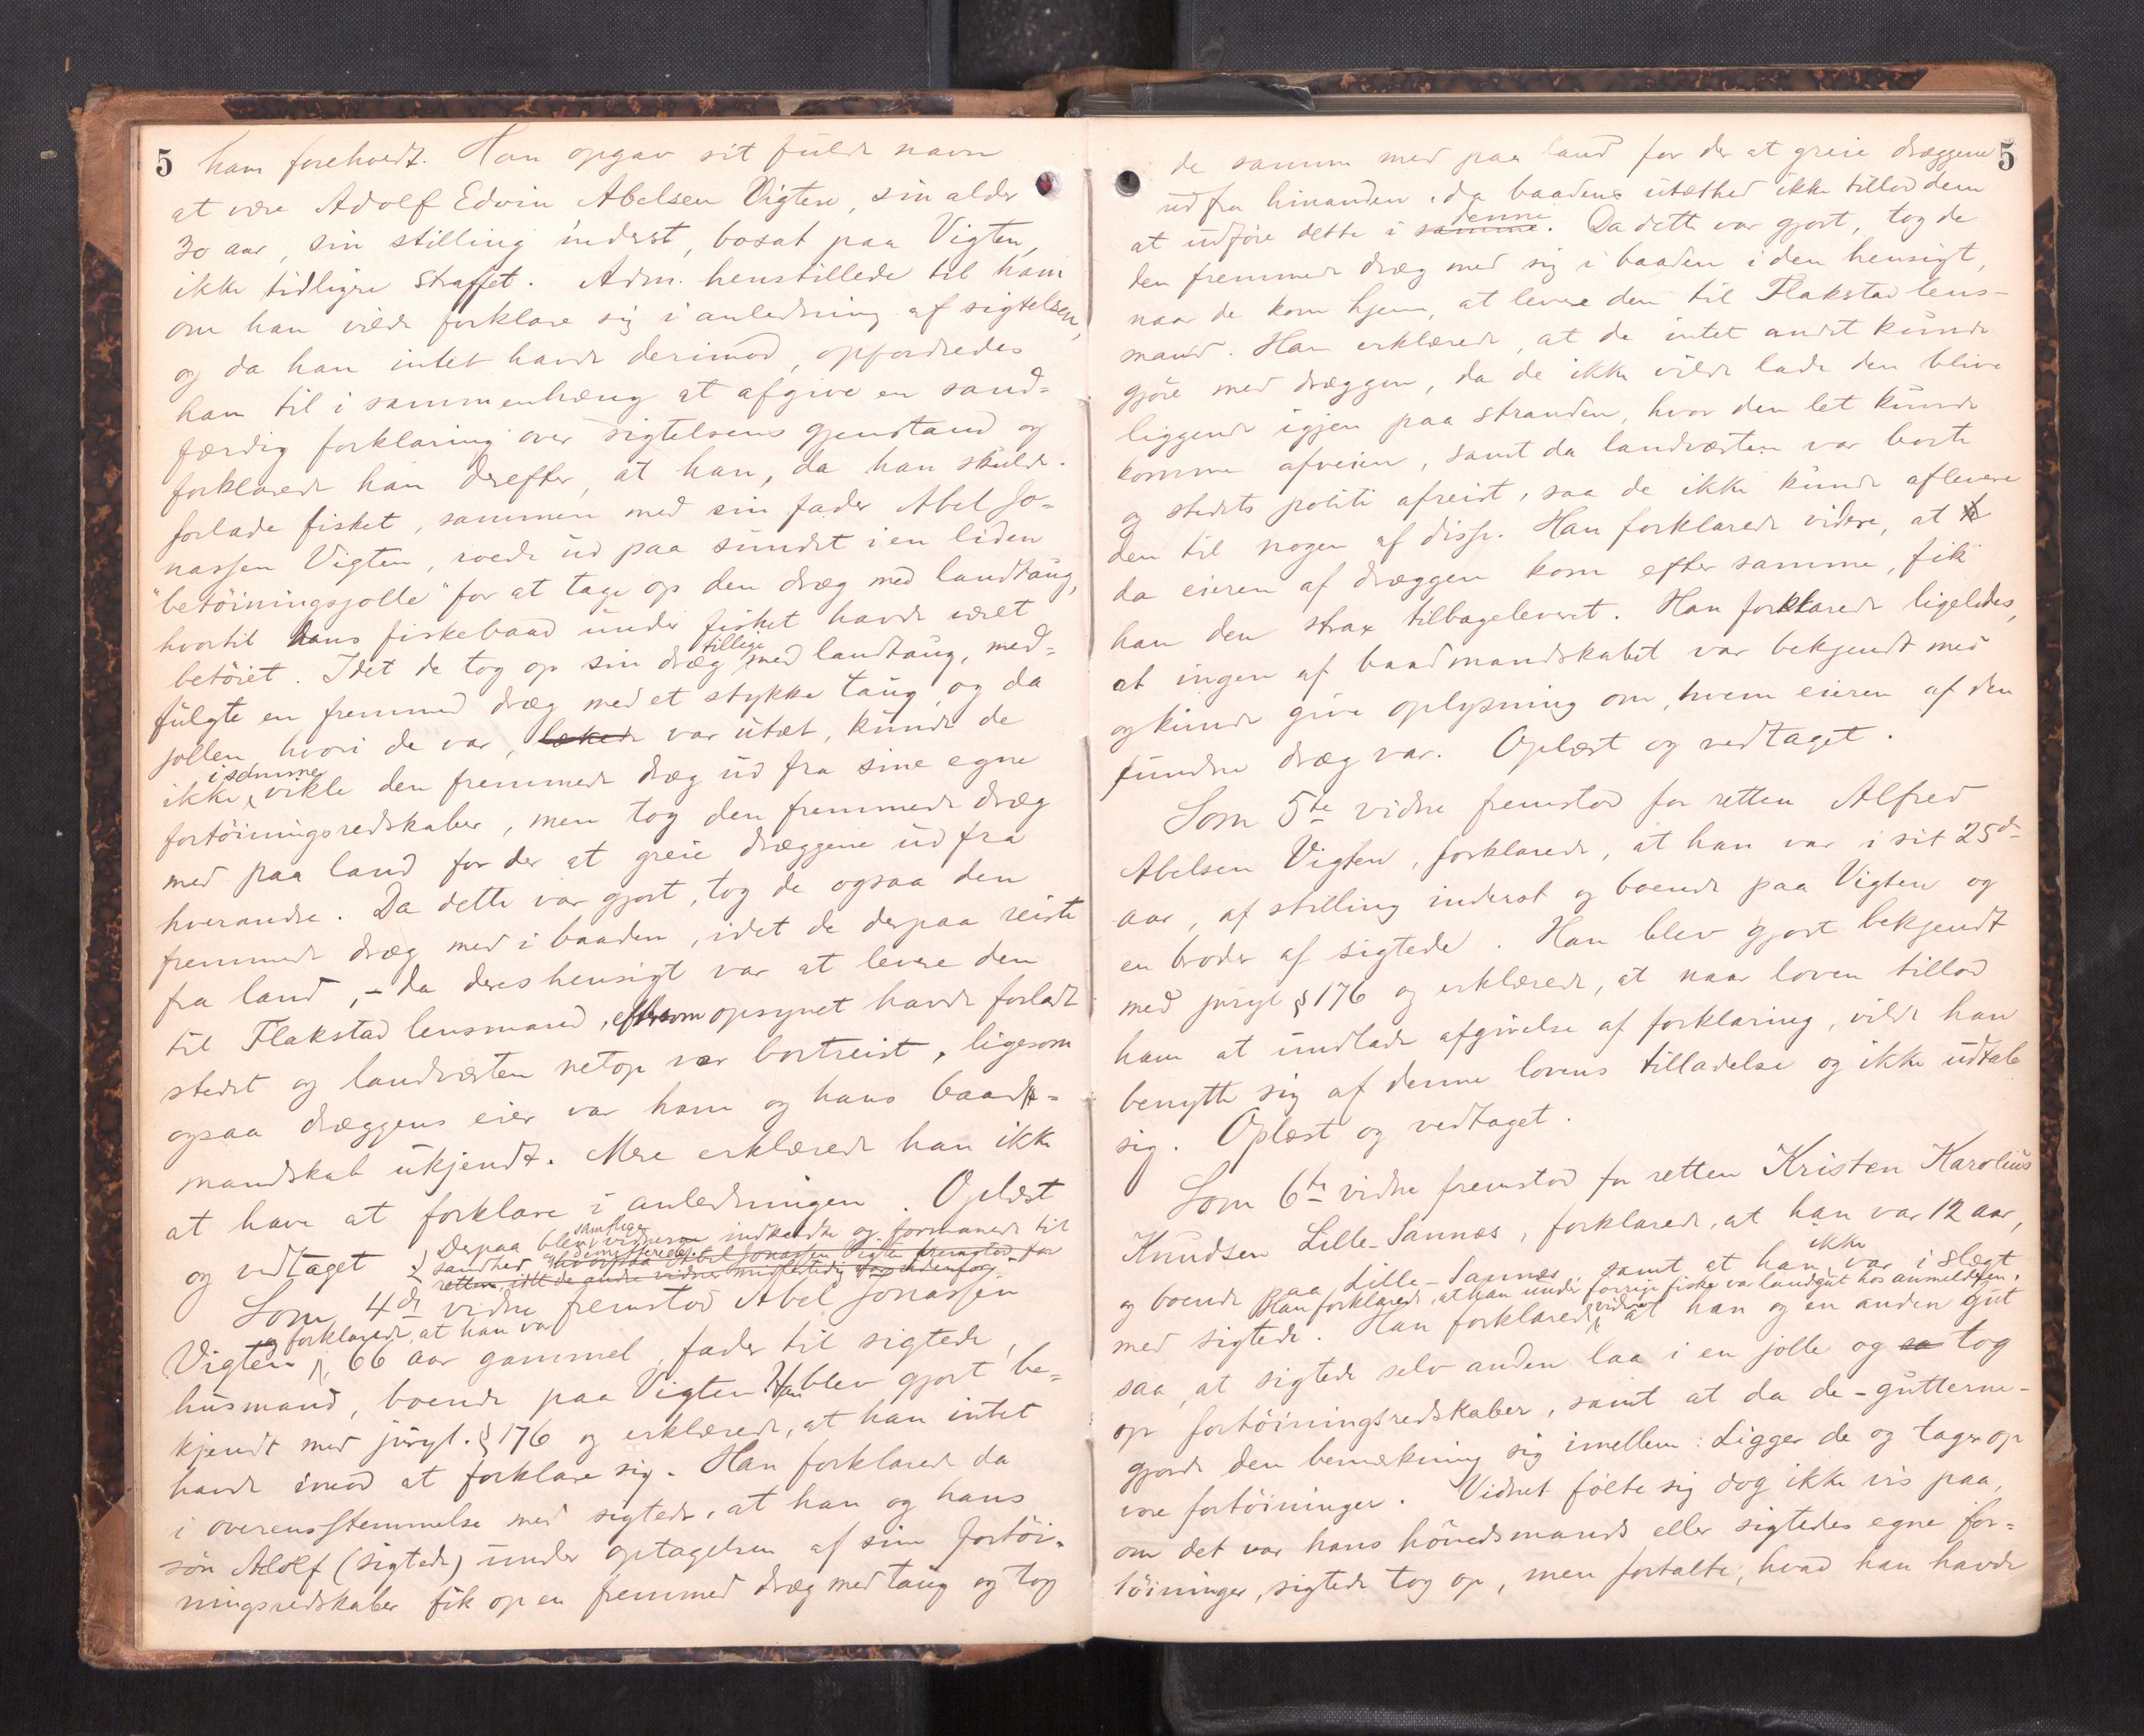 5 ham foreholdt. Han opgav sit fulde navn
at være Adolf Edvin Abelsen Vigten, sin alder
30 aar, sin stilling inderst, bosat paa Vigten,
ikke tidligere straffet. Adm. henstillede til ham
om han vilde forklare sig i anledning af sigtelsen,
og da han intet havde derimod, opfordredes
han til i sammenhæng at afgive en sand=
færdig forklaring over sigtelsens gjenstand og
forklarede han derefter, at han, da han skulde
forlade fisket, sammen med sin fader Abel Jo=
nassen Vigten, roede ud paa sundet i en liden
"betöiningsjolle" for at tage op den dræg med landtaug,
hvortil hans fiskebaad under fisket havde været
betöiet. Idet de tog op sin dræg tillige med landtaug, med=
fulgte en fremmed dræg med et stykke taug, og da
jollen hvori de var, lækede var utæt, kunde de
ikke i samme vikle den fremmede dræg ud fra sine egne
fortöiningsredskaber, men tog den fremmede dræg
med paa land for der at greie dræggene ud fra
hverandre. Da dette var gjort, tog de ogsaa den
fremmede dræg med i baaden, idet de derpaa reiste
fra land, - da deres hensigt var at levere den
til Flakstad lensmand, eftersom opsynet havde forladt
stedet og landværten netop var bortreist, ligesom
ogsaa dræggens eier var ham og hans baads=
mandskab ukjendt. Mere erklærede han ikke
at have at forklare i anledningen. Oplæst
og vedtaget
Derpaa blev samtlige vidnerne indkaldte og formanede til
sandhed og demitterede hvorpaa Abel Jonassen Vigten fremstod for
retten, idet de andre vidner midlertidig udenfor
Som 4de vidne fremstod Abel Jonassen
Vigten og forklarede, at han var 66 aar gammel, fader til sigtede,
husmand, boende paa Vigten. Han blev gjort be=
kjendt med juryl. § 176 og erklærede, at han intet
havde imod at forklare sig. Han forklarede da
i overensstemmelse med sigtede, at han og hans
sön Adolf (sigtede) under optagelsen af sine fortöi=
ningsredskaber fik op en fremmed dræg med taug og tog
5
de samme med paa land for der at greie dræggene
ud fra hinanden, da baadens utæthed ikke tillod dem
at udföre dette i samme denne. Da dette var gjort, tog de
den fremmede dræg med sig i baaden i den hensigt,
naar de kom hjem, at levere den til Flakstad lens=
mand. Han erklærede, at de intet andet kunde
gjöre med dræggen, da de ikke vilde lade den blive
liggende igjen paa stranden, hvor den let kunde
komme afveien, samt da landværten var borte
og stedets politi afreist, saa de ikke kunde aflevere
den til nogen af disse. Han forklarede videre, at
da eieren af dræggen kom efter samme, fik
han den strax tilbageleveret. Han forklarede ligeledes,
at ingen af baadmandskabet var bekjendt med
og kunde give oplysning om, hvem eieren af den
fundne dræg var. Oplæst og vedtaget.
Som 5te vidne fremstod for retten Alfred
Abelsen Vigten, forklarede, at han var i sit 25de
aar, af stilling inderst og boende paa Vigten og
en broder af sigtede. Han blev gjort bekjendt
med juryl § 176 og erklærede, at naar loven tillod
ham at undlade afgivelse af forklaring, vilde han
benytte sig af denne lovens tilladelse og ikke udtale
sig. Oplæst og vedtaget.
Som 6te vidne fremstod for retten Kristen Karolius
Knudsen Lille-Sannes, forklarede, at han var 12 aar,
og boende paa Lille-Sannes, samt at han ikke var i slægt
med sigtede. Han forklarede, at han under forrige fiske var landgut hos anmelderen.
Han forklarede videre, at han og en anden gut
saa, at sigtede selv anden laa i en jolle og sa tog
op fortöiningsredskaber, samt at da de - gutterne -
gjorde den bemærkning sig imellem: Ligger de og tager op
vore fortöininger. Vidnet fölte sig dog ikke vis paa,
om det var hans hövedsmands eller sigtedes egne for=
töininger, sigtede tog op, men fortalte, hvad han havde